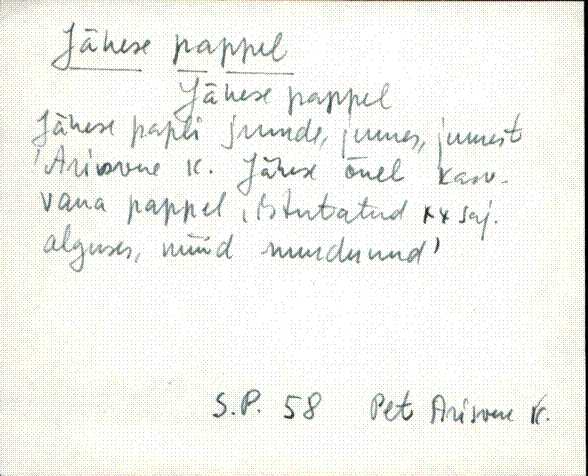 Jähese pappel
Jähese pappel
Jähese papli juurde, juures, juurest
'Arisvere k. Jähese õuel kasv.
vana pappel, istutatud XX saj.
alguses, nüüd murdunud'
S.P. 58 Pet Arisvere k.